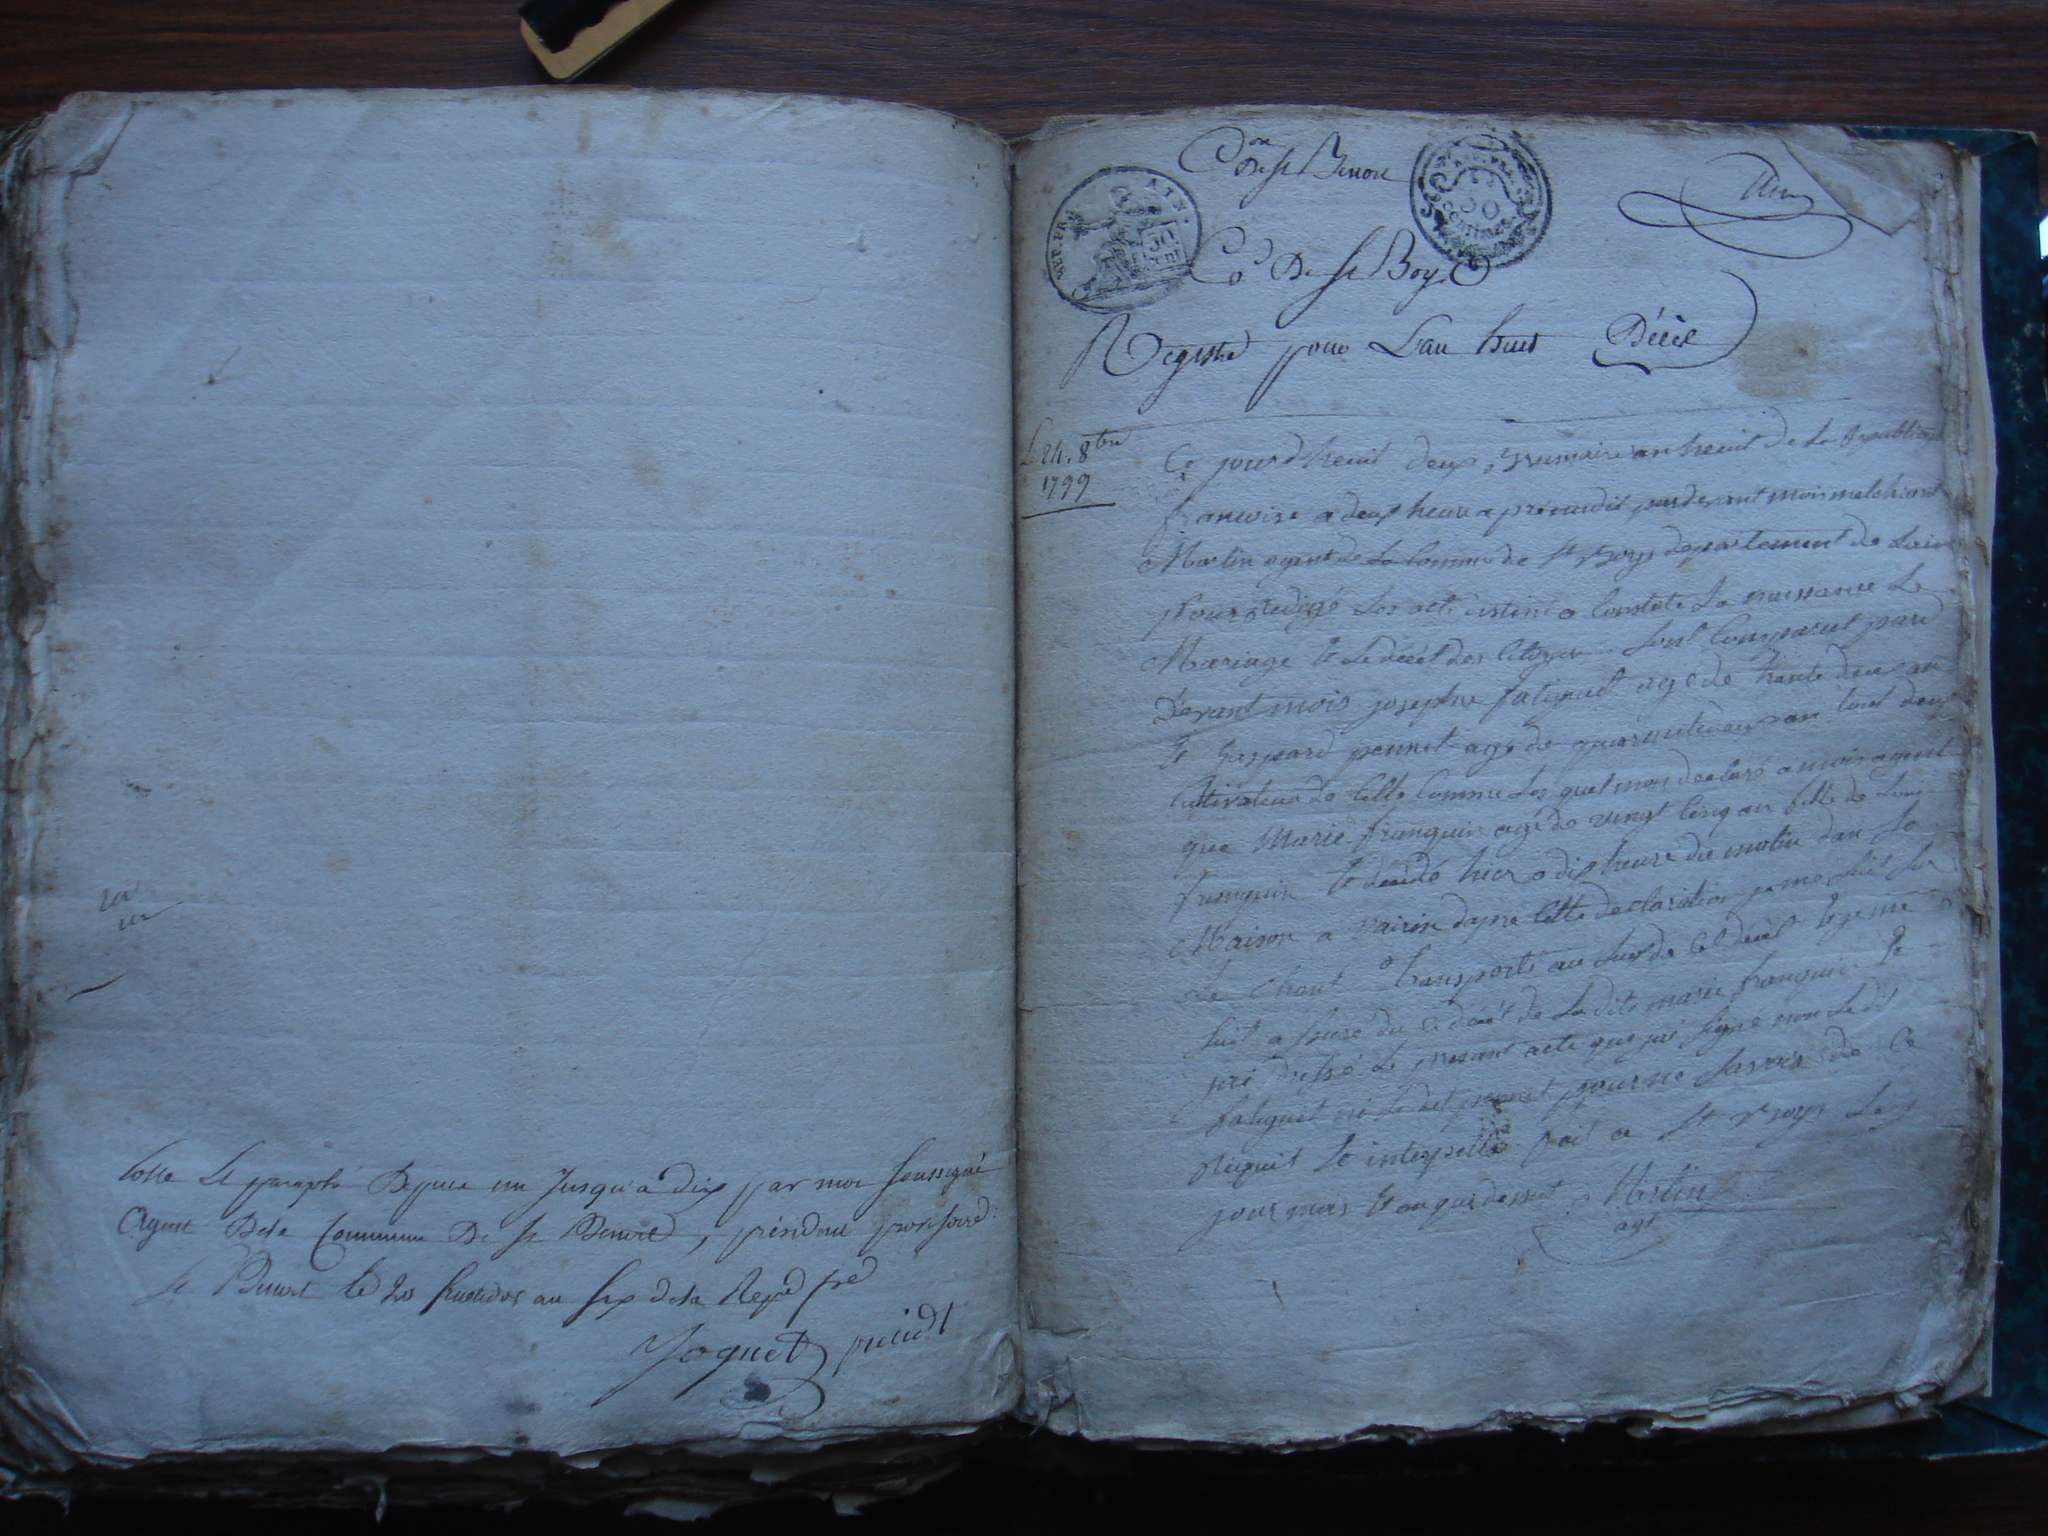 Cotte et paraphé Depuis un Jusqu'a dix par moi soussigné
Agent Dela Commune De st Benoit, président provisoire
st Benoit le 20 fructidor an sept dela Repe fre
Joquet présidt
Con De st Benoit
REP. FRA. AIN.
50 Cent
50
CENTIMES
un
Co De st Boy
Registre pour L'an huit Décès
Le 24. 8bre
1799
Ce jourd heuit deux brumaire an heuit de La republique
francoise a deux heure aprés midit pardevant mois melchiord
Martin agent de La Commune de st Boys departement de Lain
pour redigé Les acte destiné a Constaté La naissance Le
Mariage et Le décét des Citoyen Sont Comparut pard
Devant mois josephe fatiguet agé de trante deux an
et gaspard pennet agé de quarantedeux an tout deux
Cultivateur de Cette Commune Les quel mon declaré a mois agent
que Marie franquin agé de vingt Cinq an fille de
franquin et décédé hier a dix heure du matin dan Sa
Maison a daprè Cette declaration je me suit Sur
Le Chant transporté au Lieu de Cet décét et je me
suit asuré du décét de La dite marie franquin et
jai dressé Le presant acte que jai signé non Le dit
fatiguet ni Le dit pennet pour ne Savoir de Ce
Requit et interpellé fait a st Boys Les
jour mois et an que dessut Martin
agt